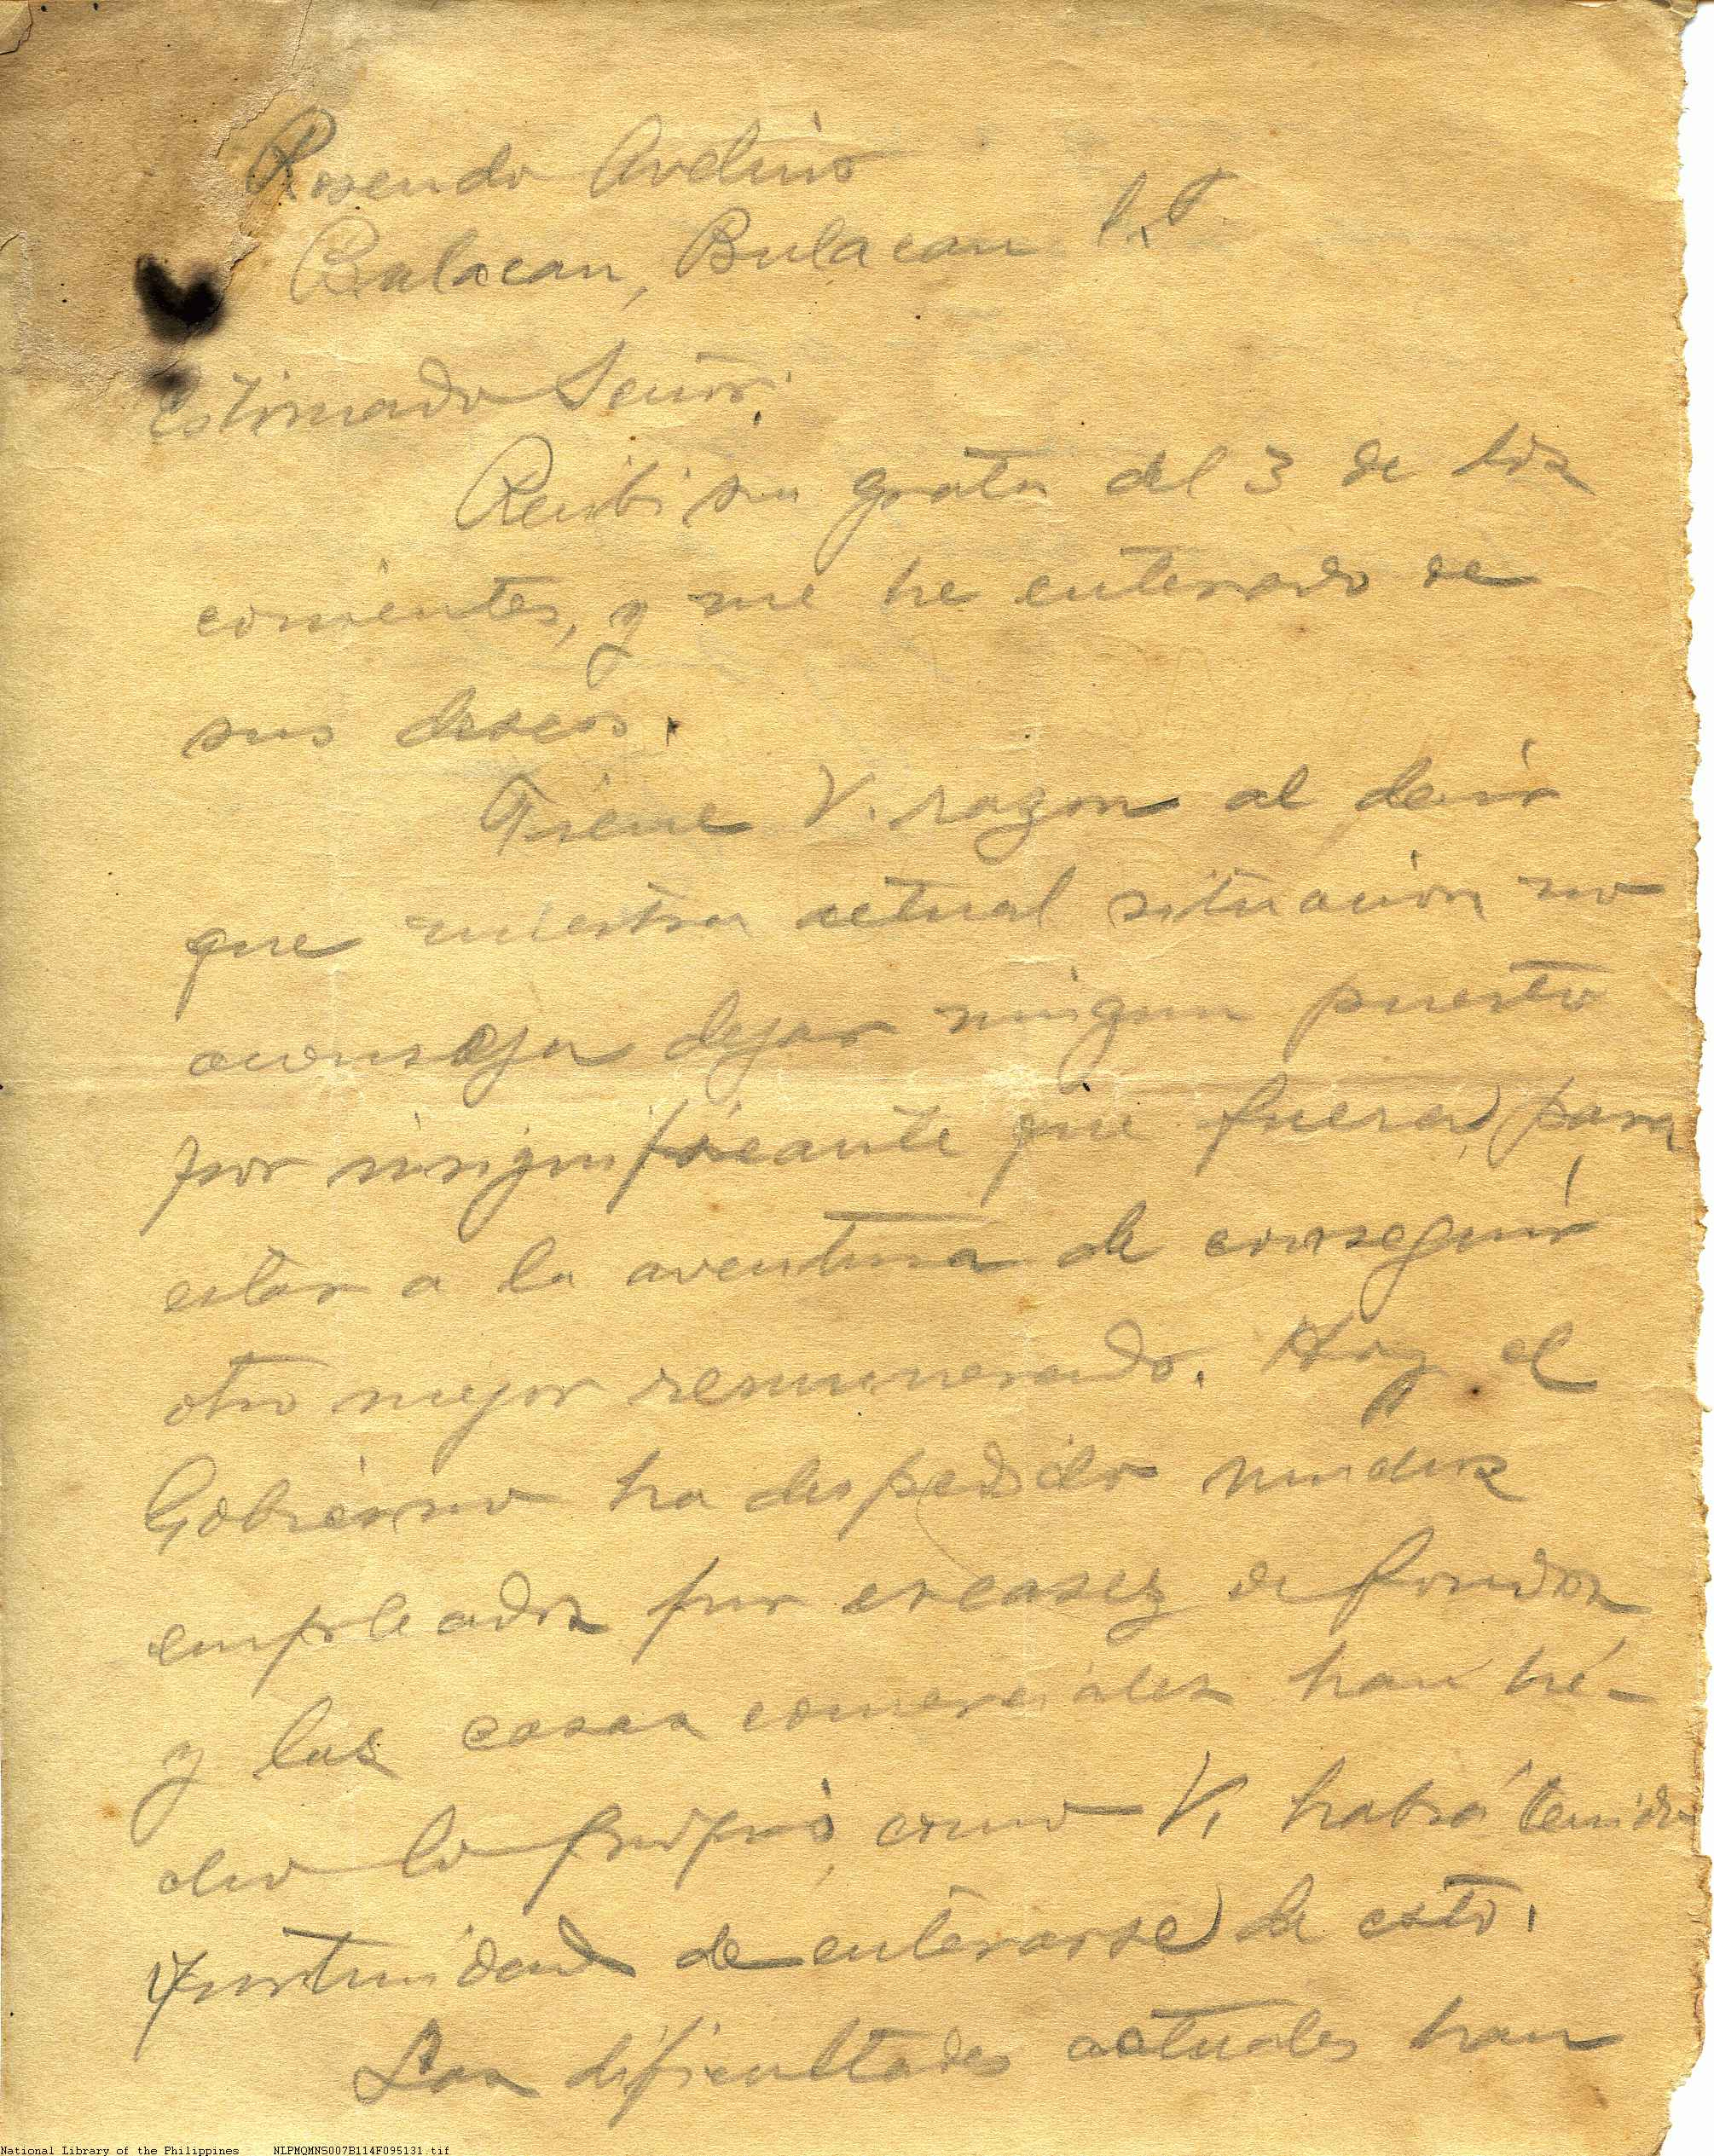 Rosendo Avelino
Bulacan, Bulacan I.F.
Estimado Señor:
Recibi su grata del 3 de los
corrientes, y me he enterado de
sus deseos.
Tiene V. razon al decir
que nuestra actual situacion no
aconseja dejar ningun puesto
por insignificante que fuera, para
estar a la aventura de conseguir
otro mejor remunerado. Hoy el
Gobierno ha despedido muchos
empleados por escasez de fondos
y las casas comerciales han he-
cho lo propio, como V. habrá tenido
oportunidad de enterarse de esto.
Las dificultades actuales han
National Library of the Philippines NLPMQMNS007B114F095131.tif